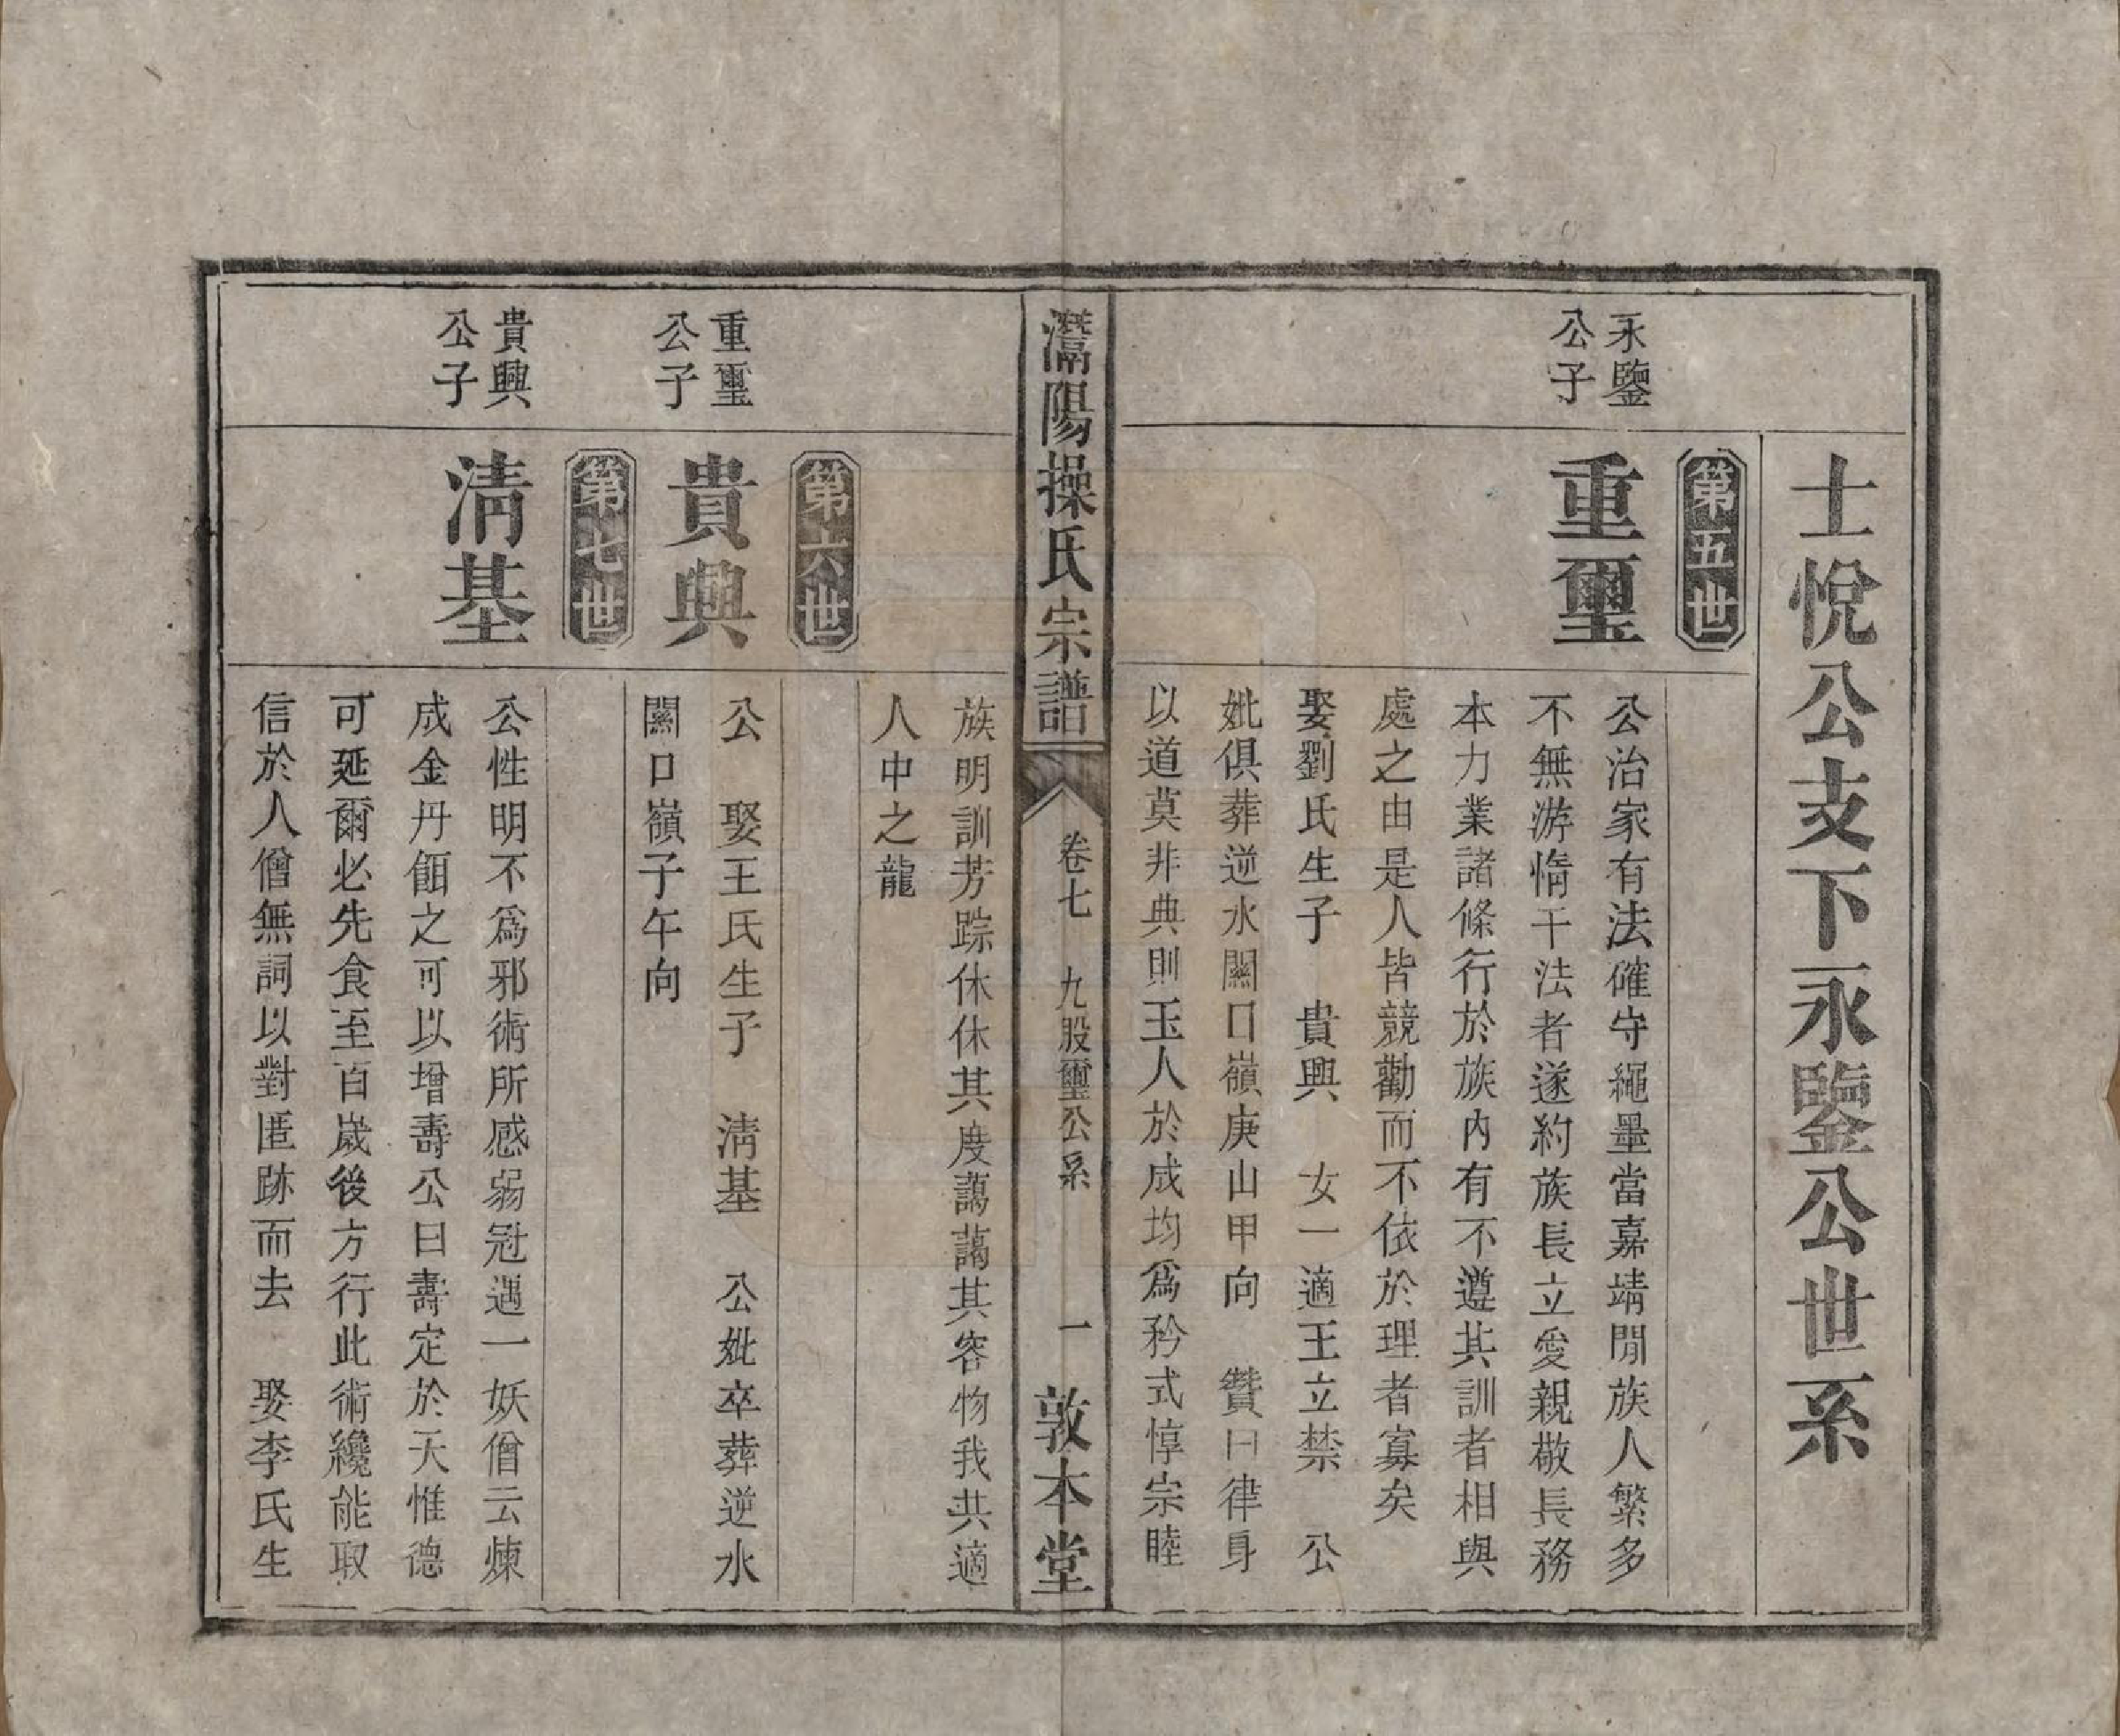 士悅公支下永鑒公世系
第五世
永鑒
公子
重璽
公治家有法確守繩墨當嘉靖間族人繁多
不無游惰干法者遂約族長立愛親敬長務
本力業諸條行於族內有不遵其訓者相與
處之由是人皆競勸而不依於理者寡矣
娶劉氏生子　貴興　女一適王立禁　公
妣俱葬逆水關口嶺庚山甲向　贊曰律身
以道莫非典則玉人於成均爲矜式惇宗睦
灊陽操氏宗譜　卷七　九股璽公系　一　敦本堂
族明訓芳踪休休其度藹藹其容物我共適
人中之龍
第六世
重璽
公子
貴興
公　娶王氏生子　淸基　公妣卒葬逆水
關口嶺子午向
第七世
貴興
公子
淸基
公性明不爲邪術所感弱冠遇一妖僧云煉
成金丹餌之可以增壽公曰壽定於天惟德
可延爾必先食至百歲後方行此術纔能取
信於人僧無詞以對匿跡而去　娶李氏生